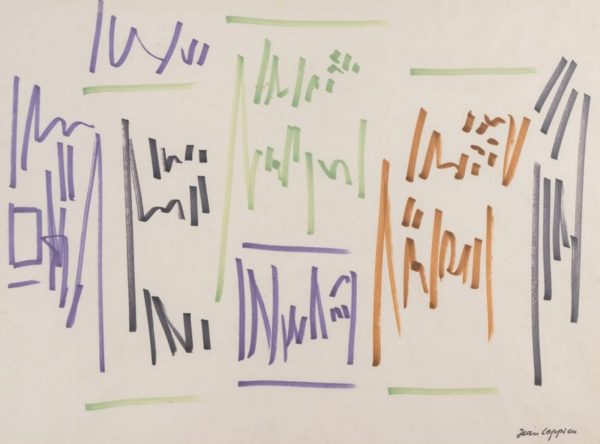 Jean Leppien